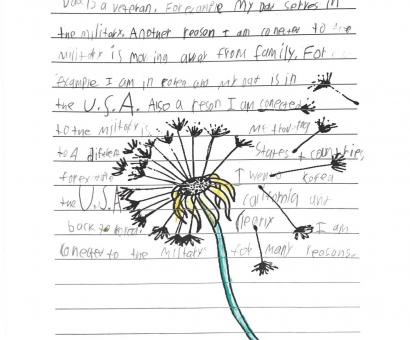 Dad is a veteran. For example My Dad serves in
the military. Another reason I am conected to the
military is moving away from family. For
Example I am in Korea and my aunt is in
the U.S.A. Also a reson I am conected
to the military is me
to 4 States + countries
for exa I went Korea
the U.S.A california and
back to I am
conected to the military for many reasons.